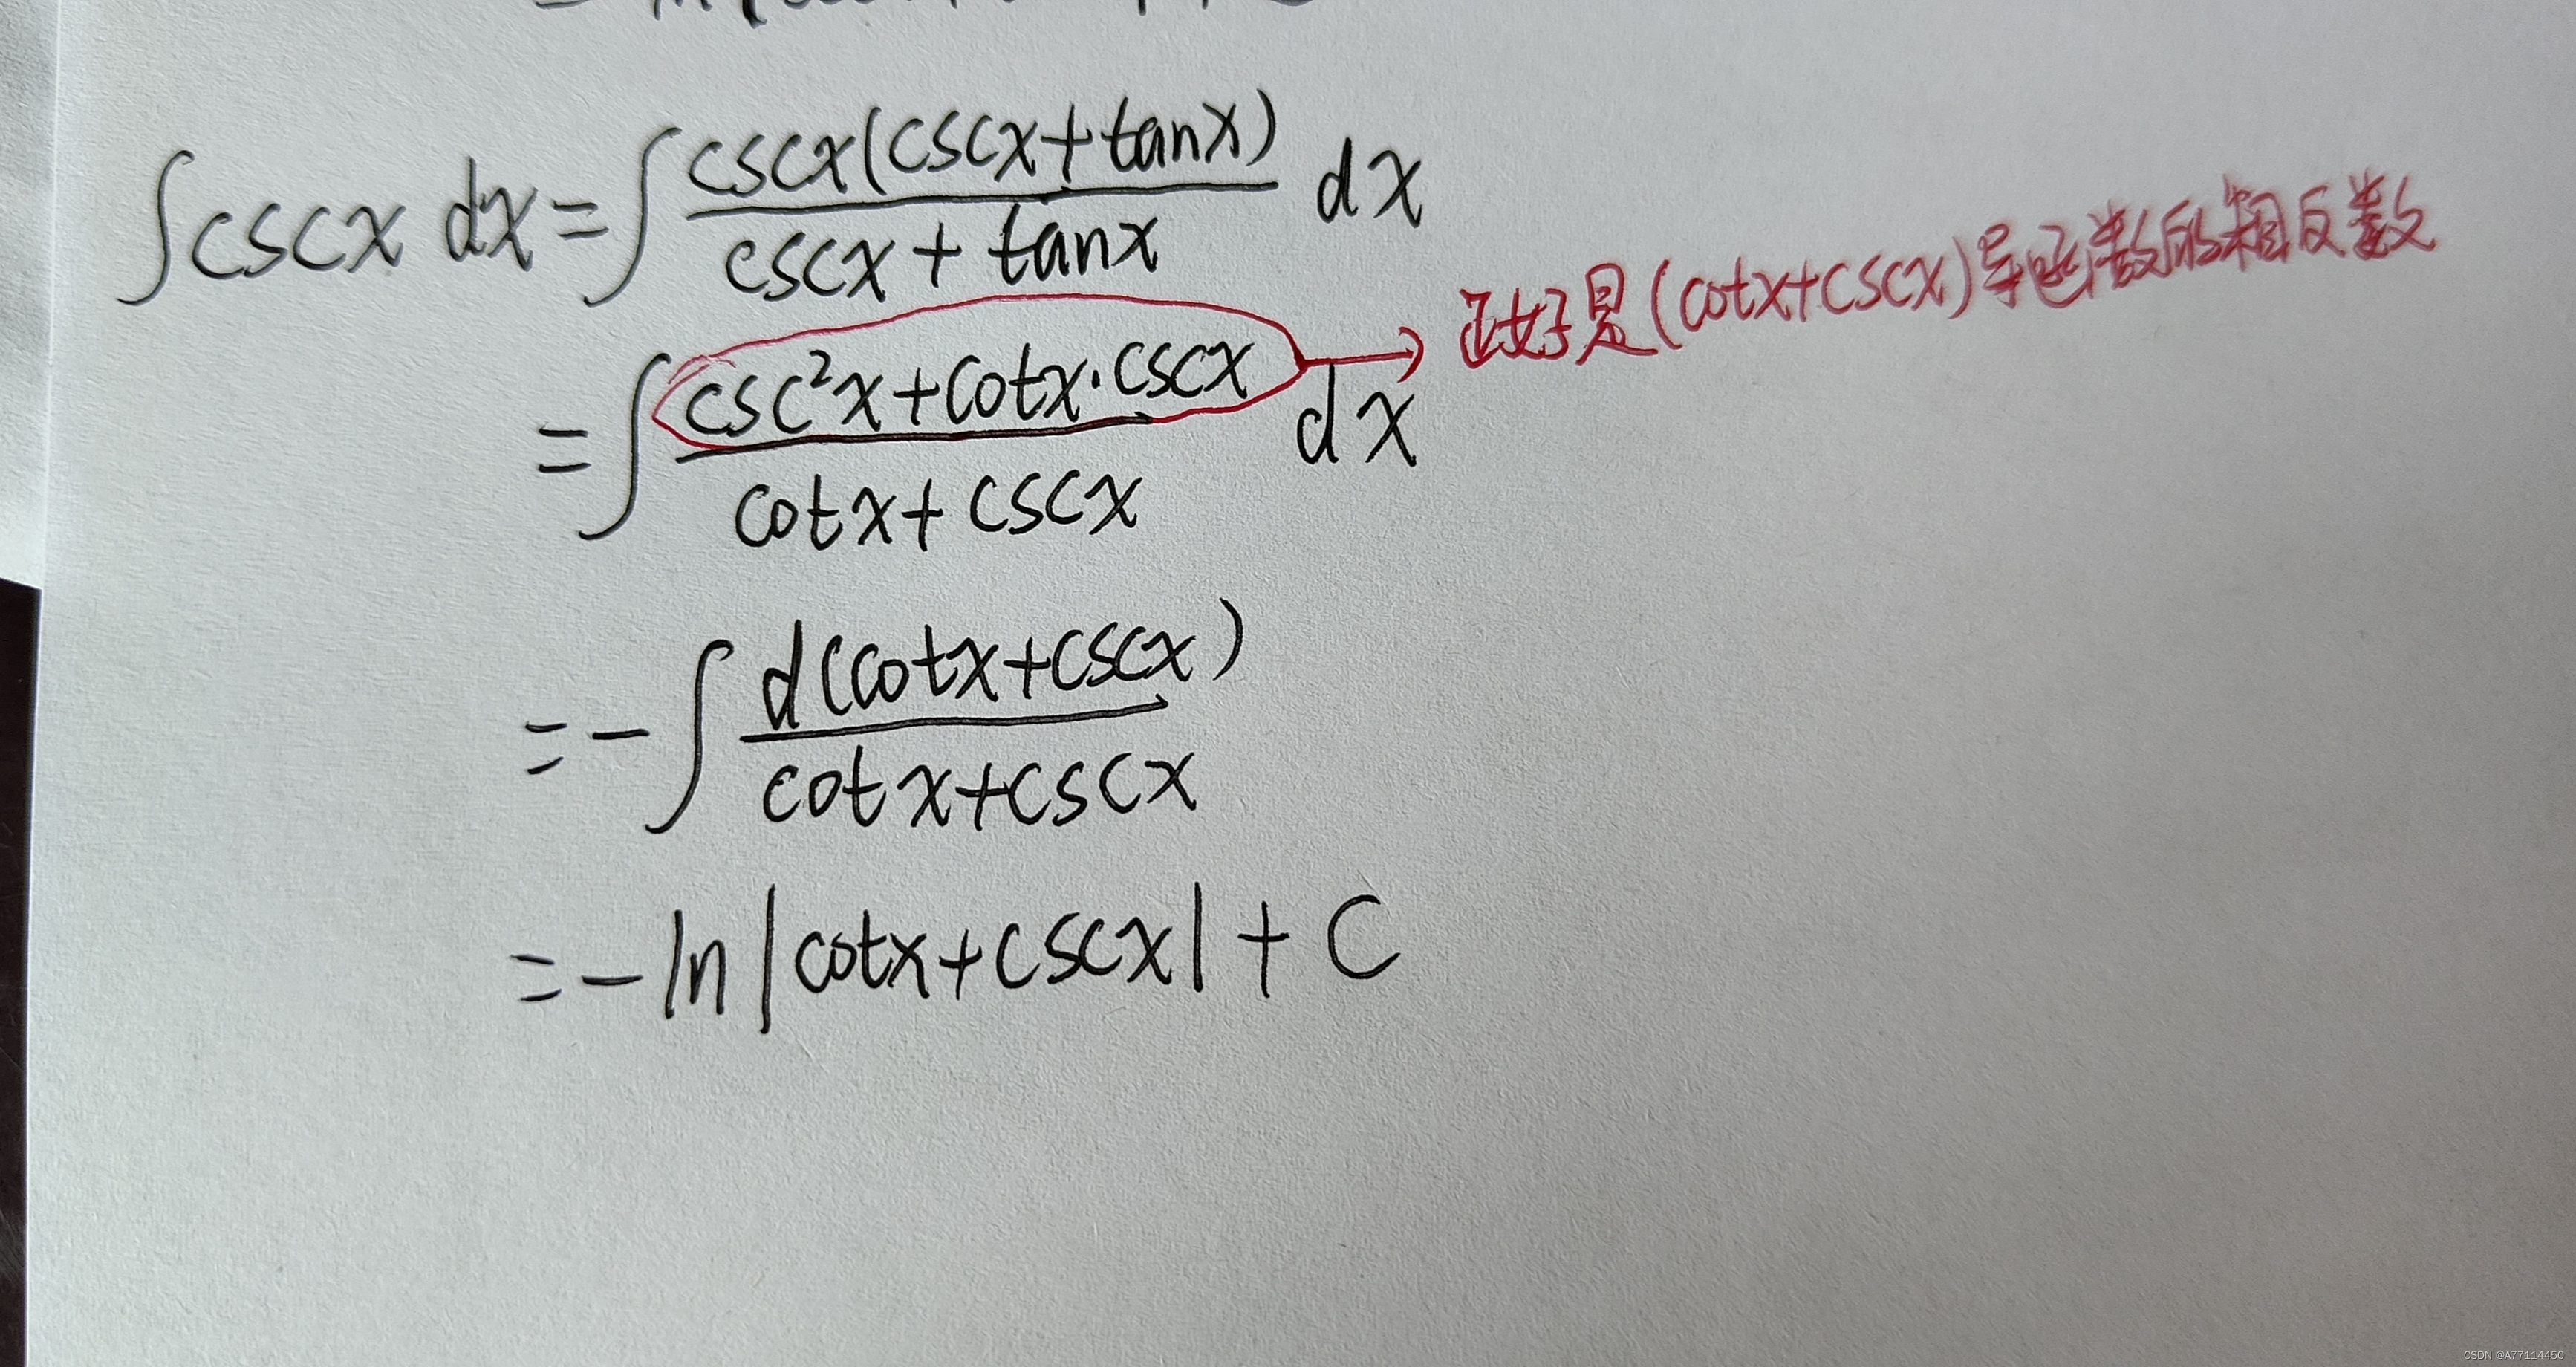 ∫cscx dx = ∫ cscx(cscx+tanx) / cscx + tanx dx
= ∫ csc²x+cotx·cscx / cotx+cscx dx → 正好是(cotx+cscx)导函数的相反数
= - ∫ d(cotx+cscx) / cotx+cscx
= - ln|cotx+cscx| + C
CSDN @A77114450